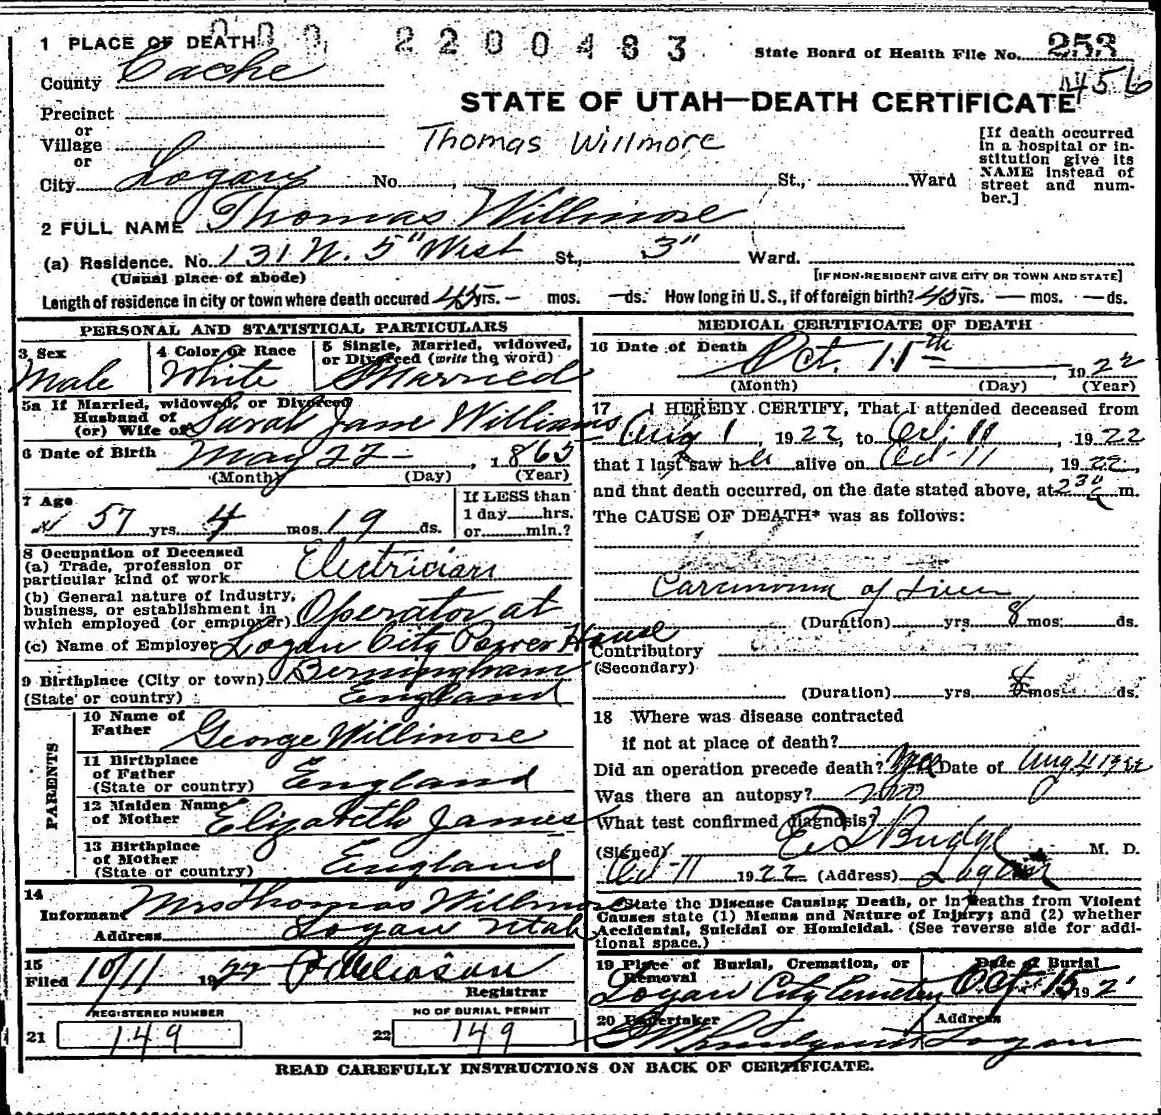 1 PLACE OF DEATH
2200483
State Board of Health File No. 253
County Cache
456
STATE OF UTAH—DEATH CERTIFICATE
Precinct
or
Village
or
Thomas Willmore
[If death occurred in a hospital or in-
stitution give its
NAME instead of
street and num-
ber.]
City Logan No. , St., Ward
2 FULL NAME Thomas Willmore
(a) Residence. No. 131 N. 5" West St., 3" Ward.
(Usual place of abode)
[IF NON-RESIDENT GIVE CITY OR TOWN AND STATE]
Length of residence in city or town where death occured 45 yrs. — mos. — ds. How long in U.S., if of foreign birth? 45 yrs. — mos. — ds.
PERSONAL AND STATISTICAL PARTICULARS
3 Sex
Male
4 Color or Race
White
5 Single, Married, widowed,
or Divorced (write the word)
Married
5a If Married, widowed, or Divorced
Husband of
(or) Wife of Sarah Jane Williams
6 Date of Birth May 22 — , 1865
(Month) (Day) (Year)
7 Age
57 yrs. 4 mos. 19 ds.
If LESS than
1 day hrs.
or min.?
8 Occupation of Deceased
(a) Trade, profession or
particular kind of work Electrician
(b) General nature of Industry,
business, or establishment in
which employed (or employer) Operator at
(c) Name of Employer Logan City Power House
9 Birthplace (City or town) Berningham
(State or country) England
PARENTS
10 Name of
Father George Willmore
11 Birthplace
of Father
(State or country) England
12 Maiden Name
of Mother Elizabeth James
13 Birthplace
of Mother
(State or country) England
14
Informant Mrs Thomas Willmore
Address Logan Utah
15
Filed 10/11 1922
Registrar
REGISTERED NUMBER
21 149
NO OF BURIAL PERMIT
22 149
MEDICAL CERTIFICATE OF DEATH
16 Date of Death Oct. 11th 1922
(Month) (Day) (Year)
17 I HEREBY CERTIFY, That I attended deceased from
Aug 1, 1922, to Oct 11 1922
that I last saw h alive on Oct-11, 1922,
and that death occurred, on the date stated above, at 230 a m.
The CAUSE OF DEATH* was as follows:
Carcinoma of Liver
(Duration) yrs. 8 mos. ds.
Contributory
(Secondary)
(Duration) yrs. 8 mos. ds.
18 Where was disease contracted
if not at place of death?
Did an operation precede death? Yes Date of Aug 4 1922
Was there an autopsy? no
What test confirmed diagnosis?
(Signed) Budge M. D.
Oct-11 1922 (Address) Logan
State the Disease Causing Death, or in deaths from Violent
Causes state (1) Means and Nature of Injury; and (2) whether
Accidental, Suicidal or Homicidal. (See reverse side for addi-
tional space.)
19 Place of Burial, Cremation, or
Removal
Logan City Cemetery
Date of Burial
Oct 15 192
20 Undertaker
Address
Logan
READ CAREFULLY INSTRUCTIONS ON BACK OF CERTIFICATE.